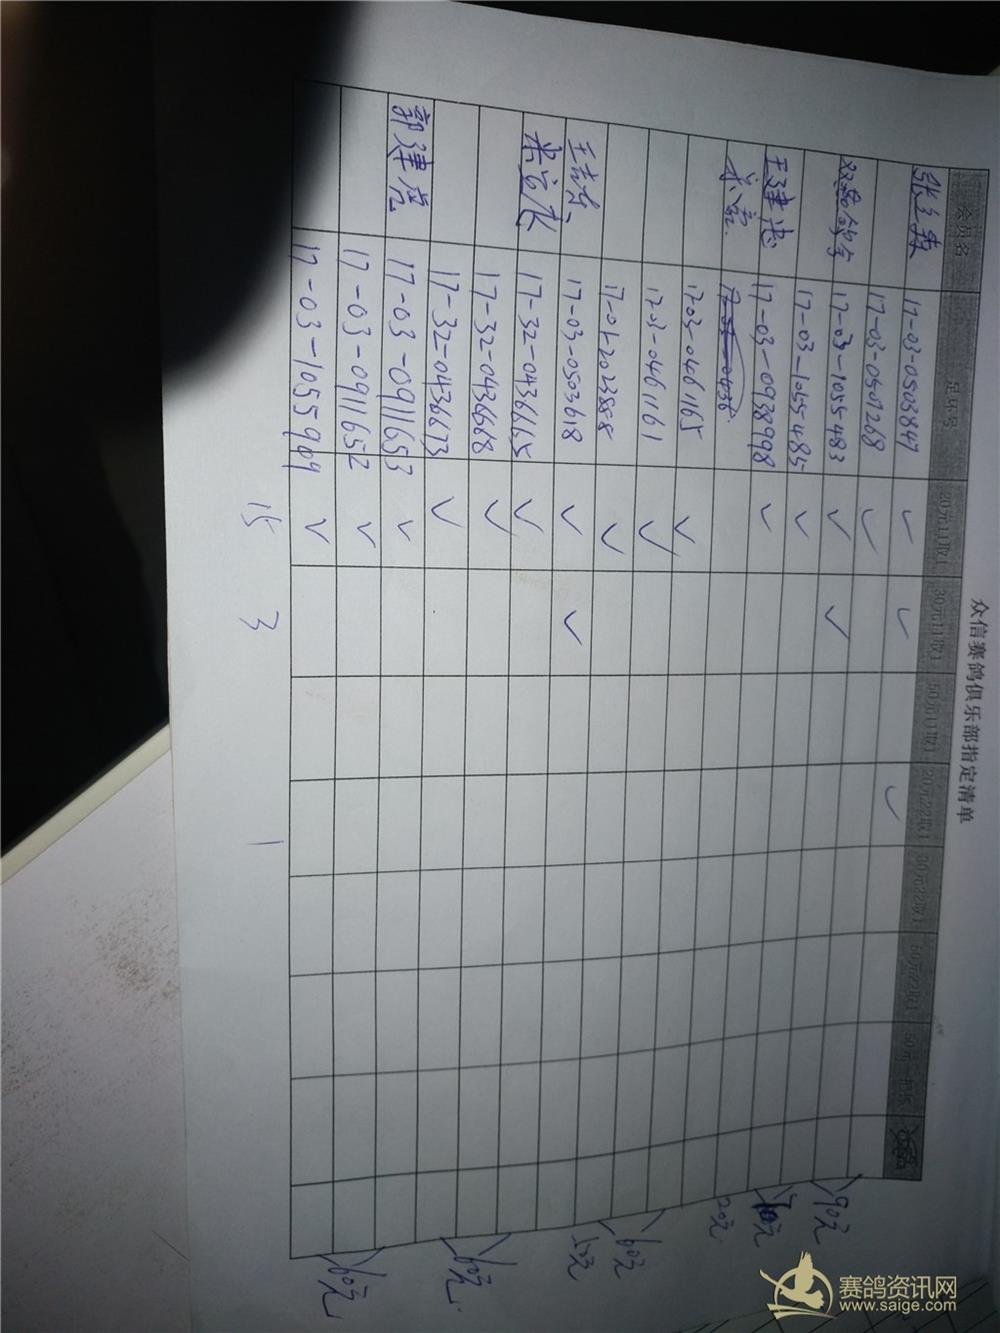 众信赛鸽俱乐部指定清单
会员名 足环号 20元11取1 30元11取1 50元11取1 20元22取1 30元22取1 50元22取1
17-03-0503847 ✓ ✓
17-03-0507268 ✓ ✓
17-03-1055483 ✓ ✓ 90元
17-03-1055485 ✓
王建忠 17-03-0938998 ✓
17-03-0461165 ✓
17-03-0461161 ✓
17-01-202888 ✓ 60元
17-03-0503618 ✓ ✓ 50元
17-32-0436665 ✓
17-32-0436668 ✓
17-32-0436673 ✓ 60元
郭建虎 17-03-0911653 ✓
17-03-0911652 ✓
17-03-1055909 ✓ 60元
20元
15 3 1
赛鸽资讯网
www.saige.com